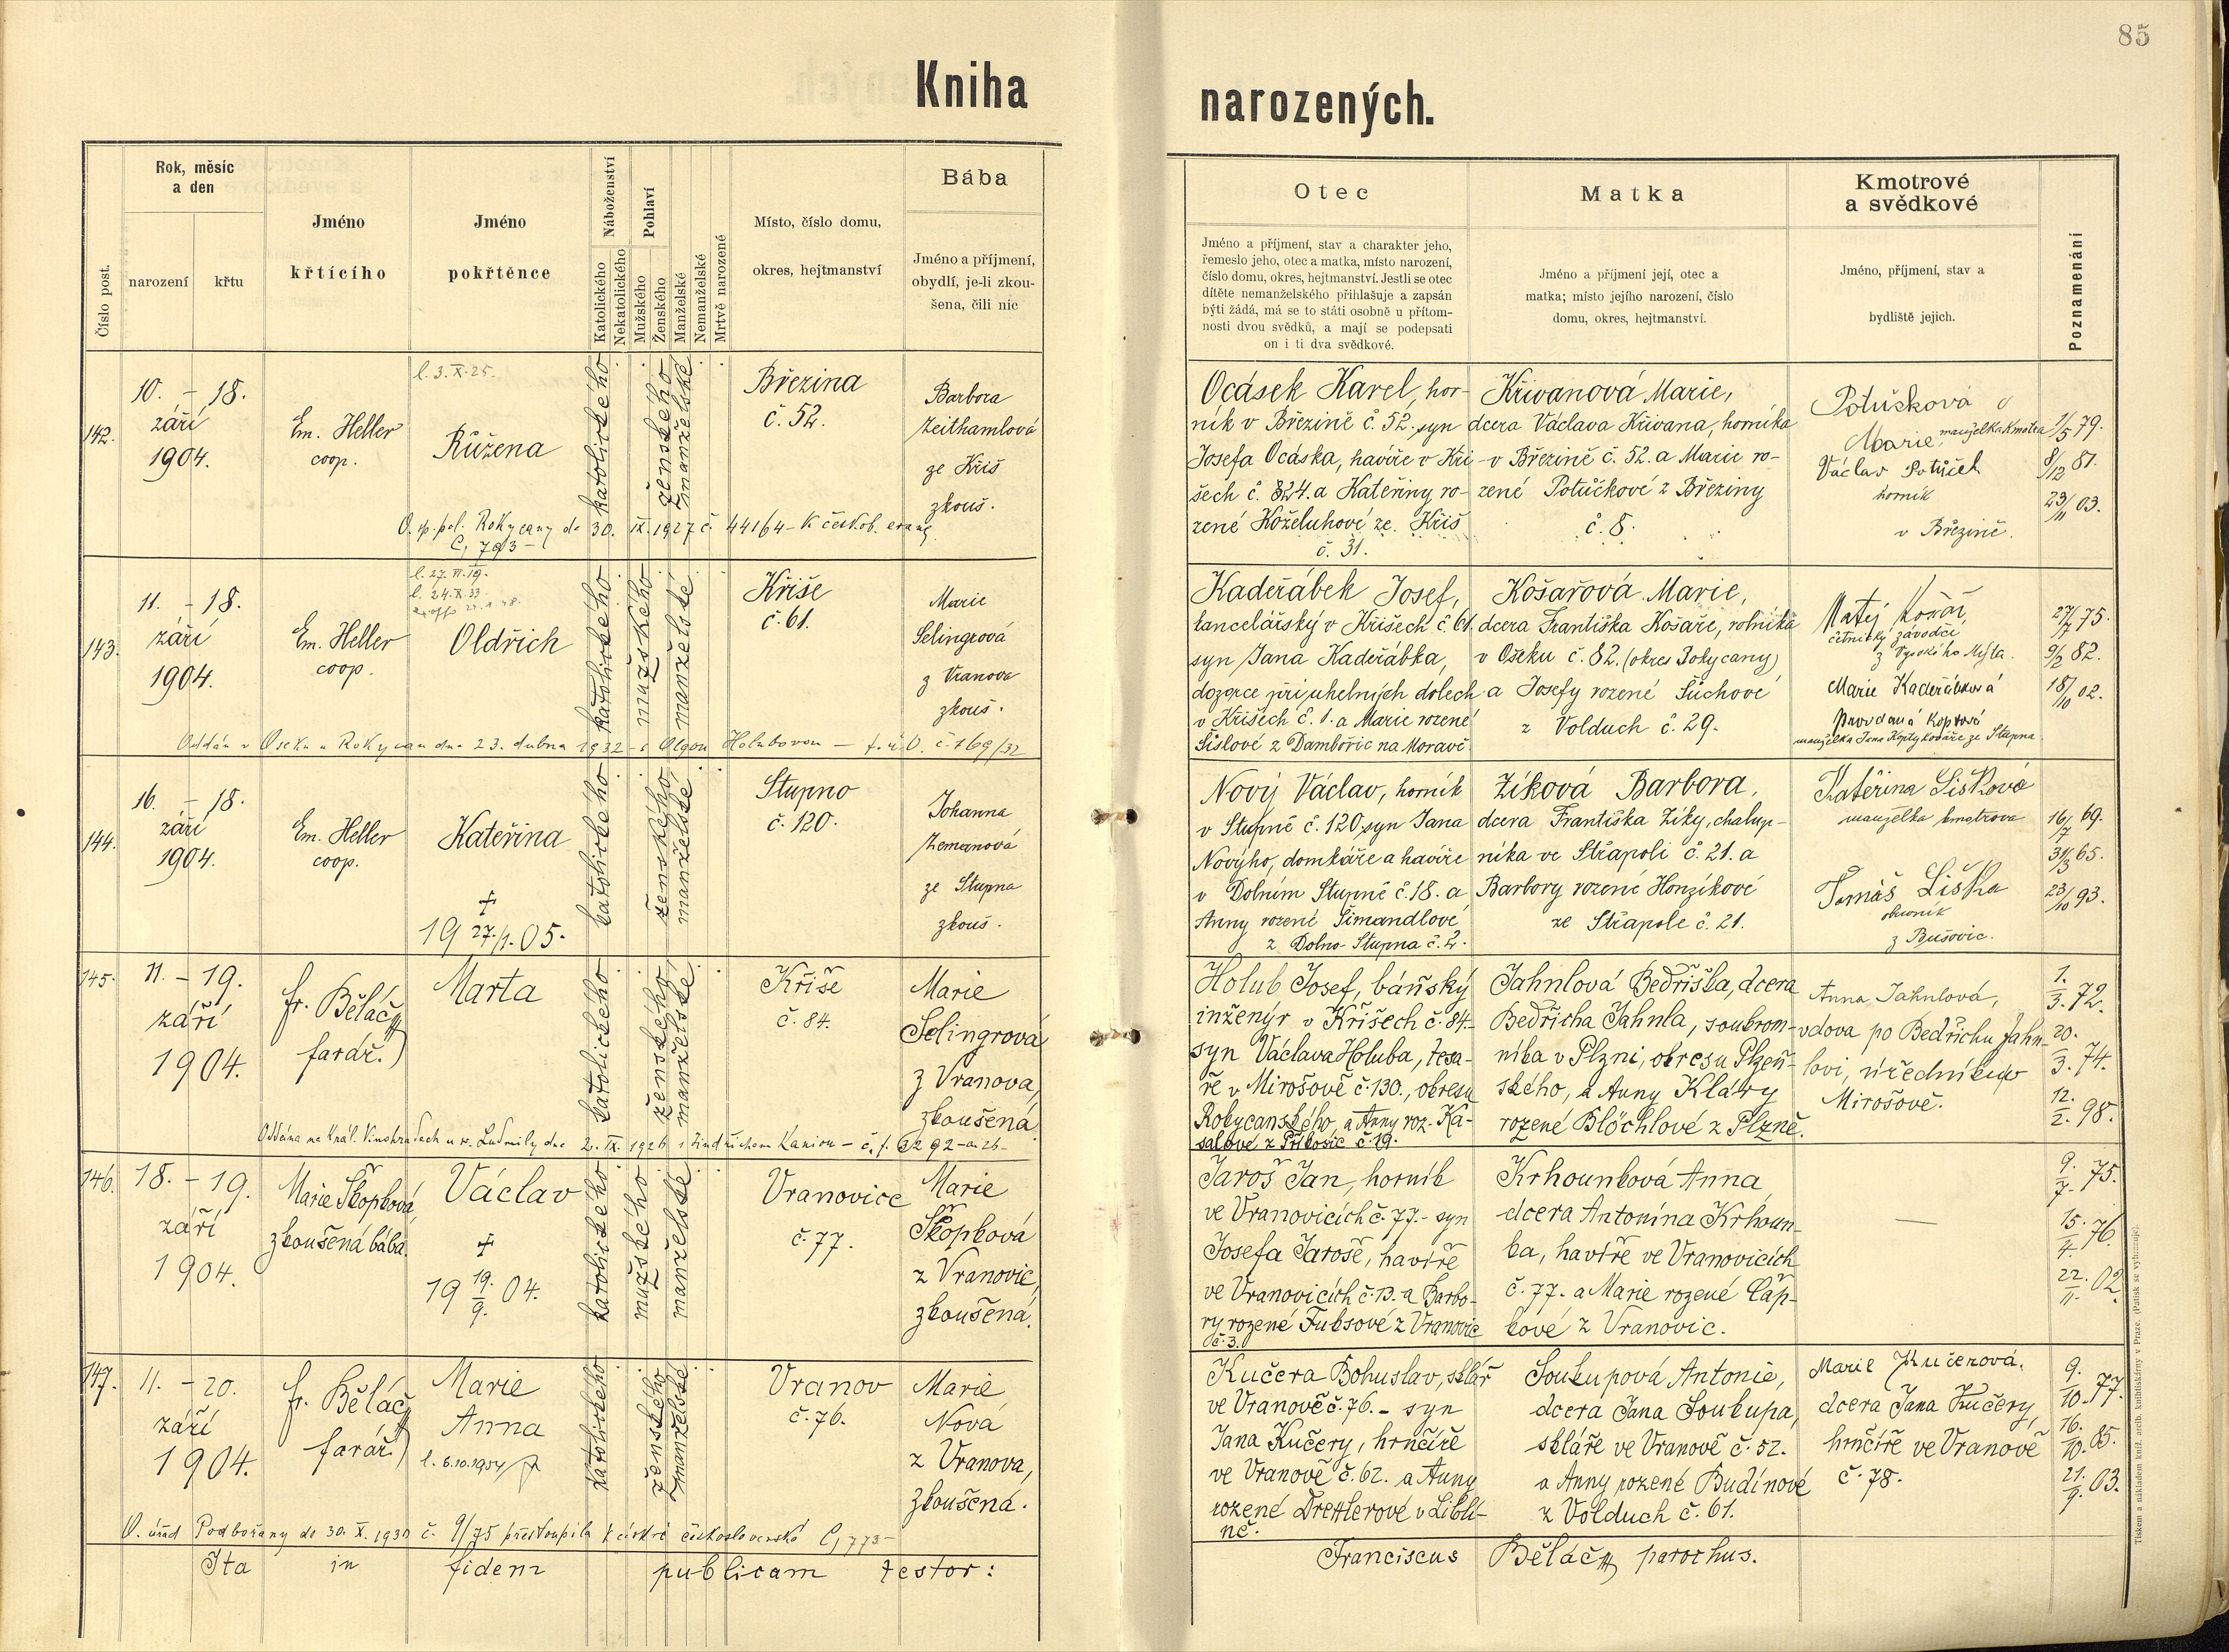 85
Kniha narozených.
Číslo post.
Rok, měsíc
a den
narození
křtu
Jméno
křtícího
Jméno
pokřtěnce
Náboženství
Katolického
Nekatolického
Pohlaví
Mužského
Ženského
Manželské
Nemanželské
Mrtvě narozené
Místo, číslo domu,
okres, hejtmanství
Bába
Jméno a příjmení,
obydlí, je-li zkou-
šena, čili nic
Otec
Jméno a příjmení, stav a charakter jeho,
řemeslo jeho, otec a matka, místo narození,
číslo domu, okres, hejtmanství. Jestli se otec
dítěte nemanželského přihlašuje a zapsán
býti žádá, má se to státi osobně u přítom-
nosti dvou svědků, a mají se podepsati
on i ti dva svědkové.
Matka
Jméno a příjmení její, otec a
matka; místo jejího narození, číslo
domu, okres, hejtmanství.
Kmotrové
a svědkové
Jméno, příjmení, stav a
bydliště jejich.
Poznamenání
142.
10. – 18.
září
1904.
Em. Heller
coop.
l. 3. X. 25.
Růžena
katolického
ženského
manželské
Březina
č. 52.
Barbora
Zeithamlová
ze Kříš
zkouš.
O. sp. pol. Rokycany de 30. IX. 1927 č. 44164 – k českob. evang.
C, 793 –
Ocásek Karel, hor-
ník v Březině č. 52. syn
Josefa Ocáska, havíře v Kří-
šech č. 324. a Kateřiny ro-
zené Koželuhové ze Kříš
č. 31.
Křivanová Marie,
dcera Václava Křivana, horníka
v Březině č. 52. a Marie ro-
zené Potůčkové z Březiny
č. 8.
Potůšková
Marie, manželka kmotra
Václav Potůček
horník
v Březině.
1/5 79.
8/12 81.
23/11 03.
143.
11. – 18.
září
1904.
Em. Heller
coop.
l. 24. X. 33
Oldřich
katolického
mužského
manželské
Kříše
č. 61.
Marie
Selingrová
z Vranova
zkouš.
Oddán v Oseku u Rokycan dne 23. dubna 1932 – s Olgou Holubovou – č. 169/32
Kadeřábek Josef,
kancelářský v Kříšech č. 61.
syn Jana Kadeřábka,
dozorce při uhelných dolech
v Kříšech č. 1. a Marie rozené
Šislové z Dambořic na Moravě
Kosařová Marie,
dcera Františka Kosaře, rolníka
v Oseku č. 82. (okres Rokycany)
a Josefy rozené Súchové
z Volduch č. 29.
Matěj Kosař,
četnický závodčí
z Vysokého Mýta.
Marie Kadeřábková
provdaná Koptová
manželka Jana Kopty kováře ze Stupna
27/7 75.
9/2 82.
18/10 02.
144.
16. – 18.
září
1904.
Em. Heller
coop.
Kateřina
✝
19 27./1. 05.
katolického
ženského
manželské
Stupno
č. 120.
Johanna
Zemanová
ze Stupna
zkouš.
Nový Václav, horník
v Stupně č. 120, syn Jana
Nového, domkáře a havíře
v Dolním Stupně č. 18. a
Anny rozené Šimandlové
z Dolno Stupna č. 2.
Zíková Barbora,
dcera Františka Zíky, chalup-
níka ve Střapoli č. 21. a
Barbory rozené Honzíkové
ze Střapole č. 21.
Kateřina Lišková
manželka kmotrova
Tomáš Liška
z Bušovic.
16/7 69.
31/3 65.
23/10 93.
145.
11. – 19.
září
1904.
fr. Běláč
farář.
Marta
katolického
ženského
manželské
Kříše
č. 84.
Marie
Selingrová
z Vranova,
zkoušená.
Oddána na Král. Vinohradech u sv. Ludmily dne 2. IX. 1926 s Jindřichem
Holub Josef, báňský
inženýr v Kříšech č. 84.-
syn Václava Holuba, tesa-
ře v Mirošově č. 130., okresu
Rokycanského, a Anny roz. Ka-
salové z Příkosic č. 19.
Jahnlová Bedřiška, dcera
Bedřicha Jahnla, soukrom-
níka v Plzni, okresu Plzeň-
ského, a Anny Kláry
rozené Blöchlové z Plzně.
Anna Jahnlová,
vdova po Bedřichu Jahn-
lovi, úředníku v
Mirošově.
1./3. 72.
20./3. 74.
12./2. 98.
146.
18. – 19.
září
1904.
Marie Škopková,
zkoušená bába.
Václav
✝
19 19./9. 04.
katolického
mužského
manželské
Vranovice
č. 77.
Marie
Škopková
z Vranovic,
zkoušená.
Jaroš Jan, horník
ve Vranovicích č. 77. - syn
Josefa Jaroše, havíře
ve Vranovicích č. 13. a Barbo-
ry rozené Fuksové z Vranovic
č. 3.
Krhounková Anna
dcera Antonína Krhoun-
ka, havíře ve Vranovicích
č. 77. a Marie rozené Čáp-
kové z Vranovic.
—
9./7. 75.
15./4. 76.
22./11. 02.
147.
11. – 20.
září
1904.
fr. Běláč
farář.
Marie
Anna
l. 6.10.1954
katolického
ženského
manželské
Vranov
č. 76.
Marie
Nová
z Vranova,
zkoušená.
O. úřad Podbořany de 30. X. 1930 č. 9/75 přestoupila k církvi československé C, 773 –
Kučera Bohuslav, sklář
ve Vranově č. 76. – syn
Jana Kučery, hrnčíře
ve Vranově č. 62. a Anny
rozené Drettlerové v Liblí-
ně.
Soukupová Antonie,
dcera Jana Soukupa,
skláře ve Vranově č. 52.
a Anny rozené Budínové
z Volduch č. 61.
Marie Kučerová,
dcera Jana Kučery,
hrnčíře ve Vranově
č. 78.
9./10. 77.
16./10. 85.
21./9. 03.
Ita in fidem publicam testor:
Franciscus Běláč parochus.
Tiskem a nákladem kníž. arcib. knihtiskárny v Praze. (Patisk se vyhrazuje).